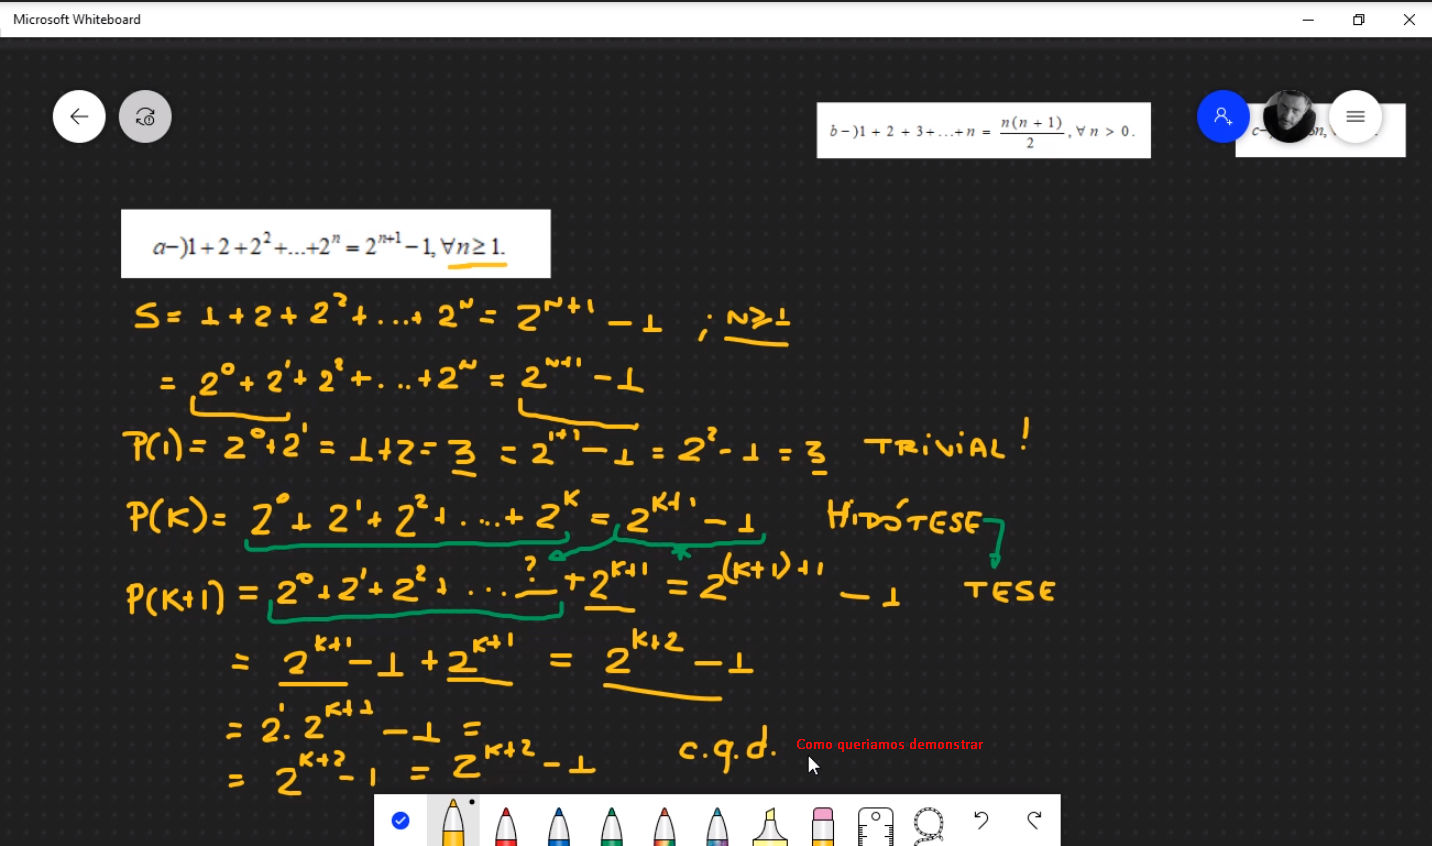 Microsoft Whiteboard
b-)1 + 2 + 3+...+n = n(n + 1)/2, ∀ n > 0.
a-)1+2+2²+...+2ⁿ = 2ⁿ⁺¹ −1, ∀n ≥ 1.
S = 1 + 2 + 2² + ... + 2ᴺ = 2ᴺ⁺¹ − 1 ; N ≥ 1
= 2⁰ + 2¹ + 2² + ... + 2ᴺ = 2ᴺ⁺¹ − 1
P(1) = 2⁰+2¹ = 1+2 = 3 = 2¹⁺¹ − 1 = 2² − 1 = 3 TRIVIAL!
P(K) = 2⁰ + 2¹ + 2² + ... + 2ᴷ = 2ᴷ⁺¹ − 1 HIPÓTESE
P(K+1) = 2⁰ + 2¹ + 2² + ... ? + 2ᴷ⁺¹ = 2⁽ᴷ⁺¹⁾⁺¹ − 1 TESE
= 2ᴷ⁺¹ − 1 + 2ᴷ⁺¹ = 2ᴷ⁺² − 1
= 2¹ . 2ᴷ⁺¹ − 1 =
= 2ᴷ⁺² − 1 = 2ᴷ⁺² − 1
c.q.d. Como queriamos demonstrar